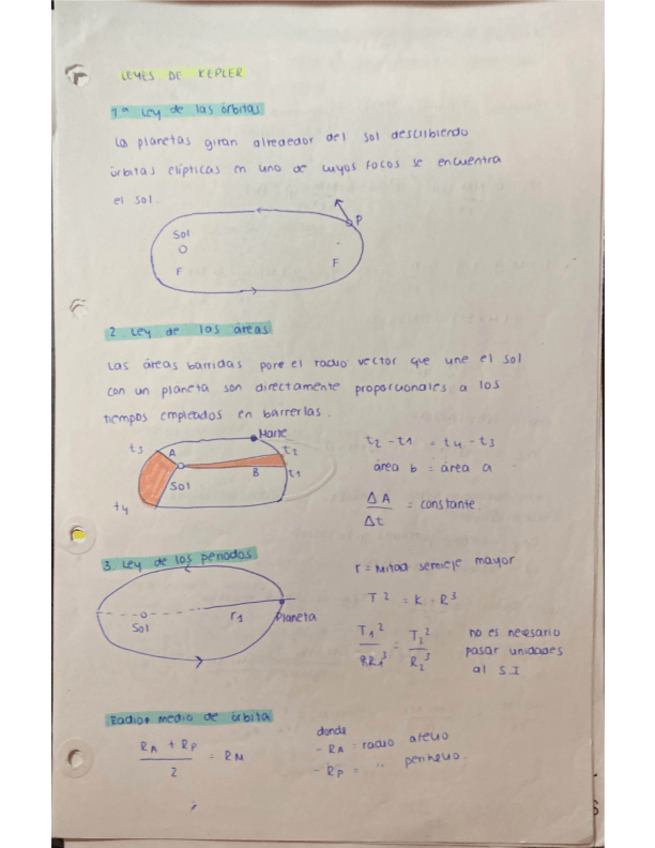 LEYES DE KEPLER
1ª Ley de las órbitas
La planetas giran alrededor del sol describiendo
órbitas elípticas en uno de cuyos focos se encuentra
el sol.
P
Sol
F
F
2. Ley de las áreas
Las áreas barridas pore el radio vector que une el sol
con un planeta son directamente proporcionales a los
tiempos empleados en barrerlas.
Marte
t3
A
t2
B
t1
Sol
t4
t2 - t1 = t4 - t3
área b = área a
ΔA
Δt
= constante
3. Ley de los periodos
r1
Planeta
Sol
r = Mitad semieje mayor
T² = K · R³
T1² / R1³ = T2² / R2³
no es necesario
pasar unidades
al S.I
Radios medio de órbita
RA + RP
2
= RM
donde
- RA = radio afelio
- RP = " perihelio.